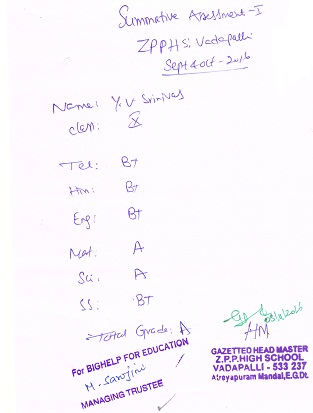 Summative Assessment - I
ZPPHS, Vadapalli
Sept & Oct - 2016
Name: Y.V Srinivas
Class: X
Tel: B+
Hin: B+
Eng: B+
Mat: A
Sci: A
SS: B+
Total Grade: A
HM
For BIGHELP FOR EDUCATION
M. Sarojini
MANAGING TRUSTEE
GAZETTED HEAD MASTER
Z.P.P.HIGH SCHOOL
VADAPALLI - 533 237
Atreyapuram Mandal, E.G.Dt.